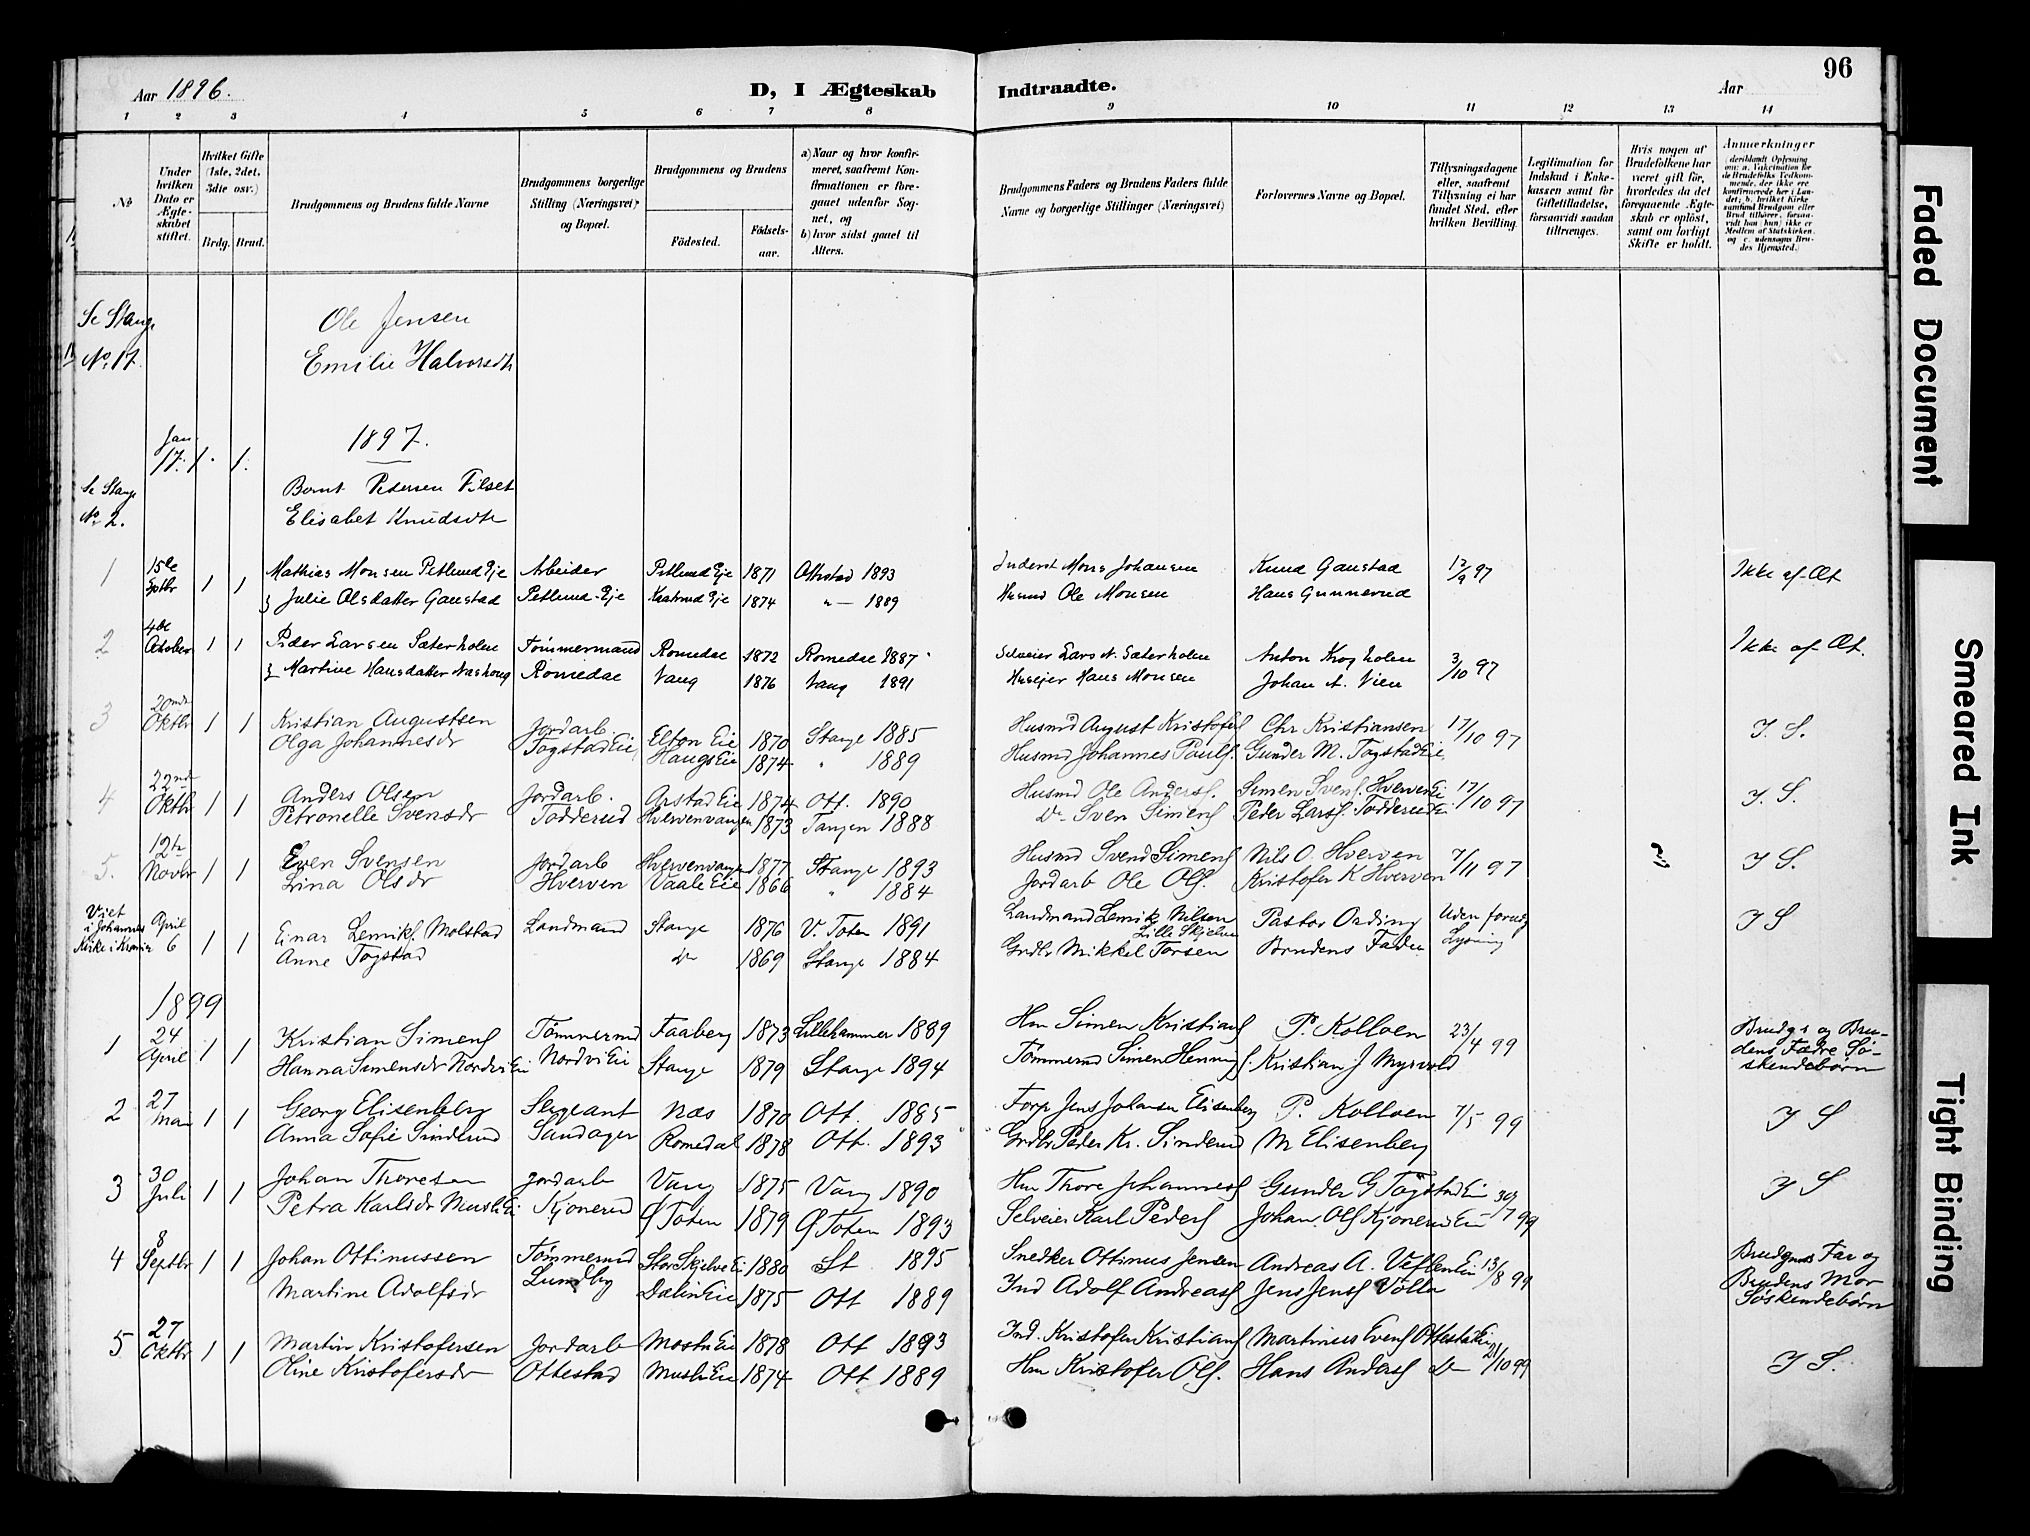 Aar 1896.
D, I Ægteskab
Indtraadte.
Aar
96
1 2 3 4 5 6 7 8 9 10 11 12 13 14
No
Under hvilken Dato er Ægteskabet stiftet.
Hvilket Gifte (1ste, 2det, 3die osv.)
Brdg. Brud.
Brudgommens og Brudens fulde Navne
Brudgommens borgerlige Stilling (Næringsvei) og Bopæl.
Brudgommens og Brudens
Födested.
Födselsaar.
a) Naar og hvor konfirmeret, saafremt Konfirmationen er foregaaet udenfor Sognet, og
b) hvor sidst gaaet til Alters.
Brudgommens Faders og Brudens Faders fulde Navne og borgerlige Stillinger (Næringsvei)
Forlovernes Navne og Bopæl.
Tillysningsdagene eller, saafremt Tillysning ei har fundet Sted, efter hvilken Bevilling.
Legitimation for Indskud i Enkekassen samt for Giftetilladelse, forsaavidt saadan tiltrænges.
Hvis nogen af Brudefolkene har været gift för, hvorledes da det foregaaende Ægteskab er oplöst, samt om lovligt Skifte er holdt.
Anmærkninger
(deriblandt Oplysning om: a. Vakcination for de Brudefolks Vedkommende, der ikke ere konfirmerede her i Landet; b. hvilket Kirkesamfund Brudgom eller Brud tilhörer, forsaavidt han (hun) ikke er Medlem af Statskirken, og c. udensogns Brudes Hjemsted.)
Se Stange Ole Jensen
No. 17. Emilie Halvorsdtr
1897.
Jan. 17. 1. 1.
Se Stange Bernt Pedersen Vilset
No 2. Elisabet Knudsdtr
1 15de Septbr 1 1 Mathias Monsen Petlund Eje Arbeider Petlund Eje 1871 Ottestad 1893 Inderst Mons Johansen Knud Gaustad 12/9 97 Ikke af Æt
} Julie Olsdatter Gaustad Petlund-Eje Eje 1874 " — 1889 Husmd Ole Monsen Hans Gunnerud
2 4de October 1 1 Peder Larsen Sæterholen Tömmermand Romedal 1872 Romedal 1887 Selveier Lars N. Sæterholen Anton Krogholen 3/10 97 Ikke af Æt.
} Martine Hansdatter Romedal Vang 1876 Vang 1891 Huseier Hans Monsen Johan A. Vien
3 20nde Oktbr 1 1 Kristian Augustsen Jordarb. Elton Eie 1870 Stange 1885 Husmd August Kristofers Chr Kristiansen 17/10 97 I. S.
Olga Johannesdr Togstad Eie Haugs Eie 1874 " 1889 Husmd Johannes Pauls. Gunder M. Togstad Eie
4 22nde Oktbr 1 1 Anders Olsen Jordarb. Arstad Eie 1874 Ott. 1890 Husmd Ole Anders. Simen Svens. Hverven Ei 17/10 97 I. S.
Petronelle Svensdr Todderud Hvervenvangen 1873 Tangen 1888 Do Sven Simens Peder Larss. Todderud Ei
5. 12te Novbr 1 1 Even Svensen Jordarb Hvervenvangen 1877 Stange 1893 Husmd Svend Simens Nils O. Hverven 7/11 97 I S.
Lina Olsdr Hverven Vaale Eie 1866 " 1884 Jordarb Ole Ols. Kristofer K Hverven
Viet i Johannes Kirke i Krania April 6 1 1 Einar Lemiks. Molstad Landmand Stange 1876 V. Toten 1891 Landmand Lemik Nilsen Lille Skjelve Pastor Ording Uden forudg Lysning I S
Anne Togstad Do 1869 Stange 1884 Grdbr Mikkel Torsen Brudens Fader
1899
1 24 April 1 1 Kristian Simens Tömmermd Faaberg 1873 Lillehammer 1889 Hm Simen Kristians P. Kolloen 23/4 99 Brudgs og Brudens Fædre Söskendebörn
Hanna Simensdr Nordvi Ei Nordvi Eie Stange 1879 Stange 1894 Tömmermd Simen Hennings. Kristian J Myrvold
2 27 Mai 1 1 Georg Elisenberg Sergeant Næs 1870 Ott. 1885 Forp Jens Johansen Elisenberg P. Kolloen 7/5 99 I S
Anna Sofie Sinderud Sandager Romedal 1878 Ott. 1893 Grdbr Peder Kr. Sinderud M Elisenberg
3 30 Juli 1 1 Johan Thoresen Jordarb Vang 1875 Vang 1890 Hm Thore Johanness Gunder G Togstad Ei 30/7 99 I S
Petra Karlsdr Musli Ei Kjonerud Ø Toten 1879 Ø Toten 1893 Selveier Karl Peders Johan Ols Kjonerud Ei
4 8 Septbr 1 1 Johan Ottinussen Tömmermd Stor Skjelve Ei 1880 St 1895 Snedker Ottinus Jensen Andreas A. Veslen Ei 13/8 99 Brudgms Far og Brudens Mor Söskendebörn
Martine Adolfsdr Lundby Dalin Eie 1875 Ott 1889 Ind Adolf Andreass Jens Jenss Volla
5 27 Oktbr 1 1 Martin Kristofersen Jordarb Mostu Eie 1878 Ott 1893 Ind. Kristofer Kristians Martinus Evens Ottestad Ei 21/10 99 I S.
Oline Kristofersdr Ottestad Musli Eie 1874 Ott 1889 Hm Kristofer Ols. Hans Anders Do
Faded Document
Smeared Ink
Tight Binding